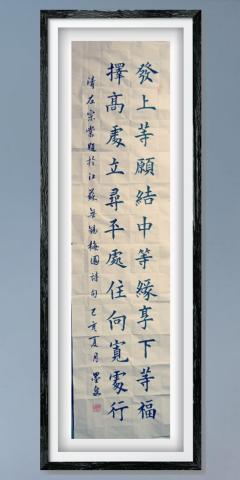 發上等願結中等緣享下等福
擇高處立尋平處住向寬處行
清左宗棠題於江蘇無錫梅園詩句 己亥夏月 墨